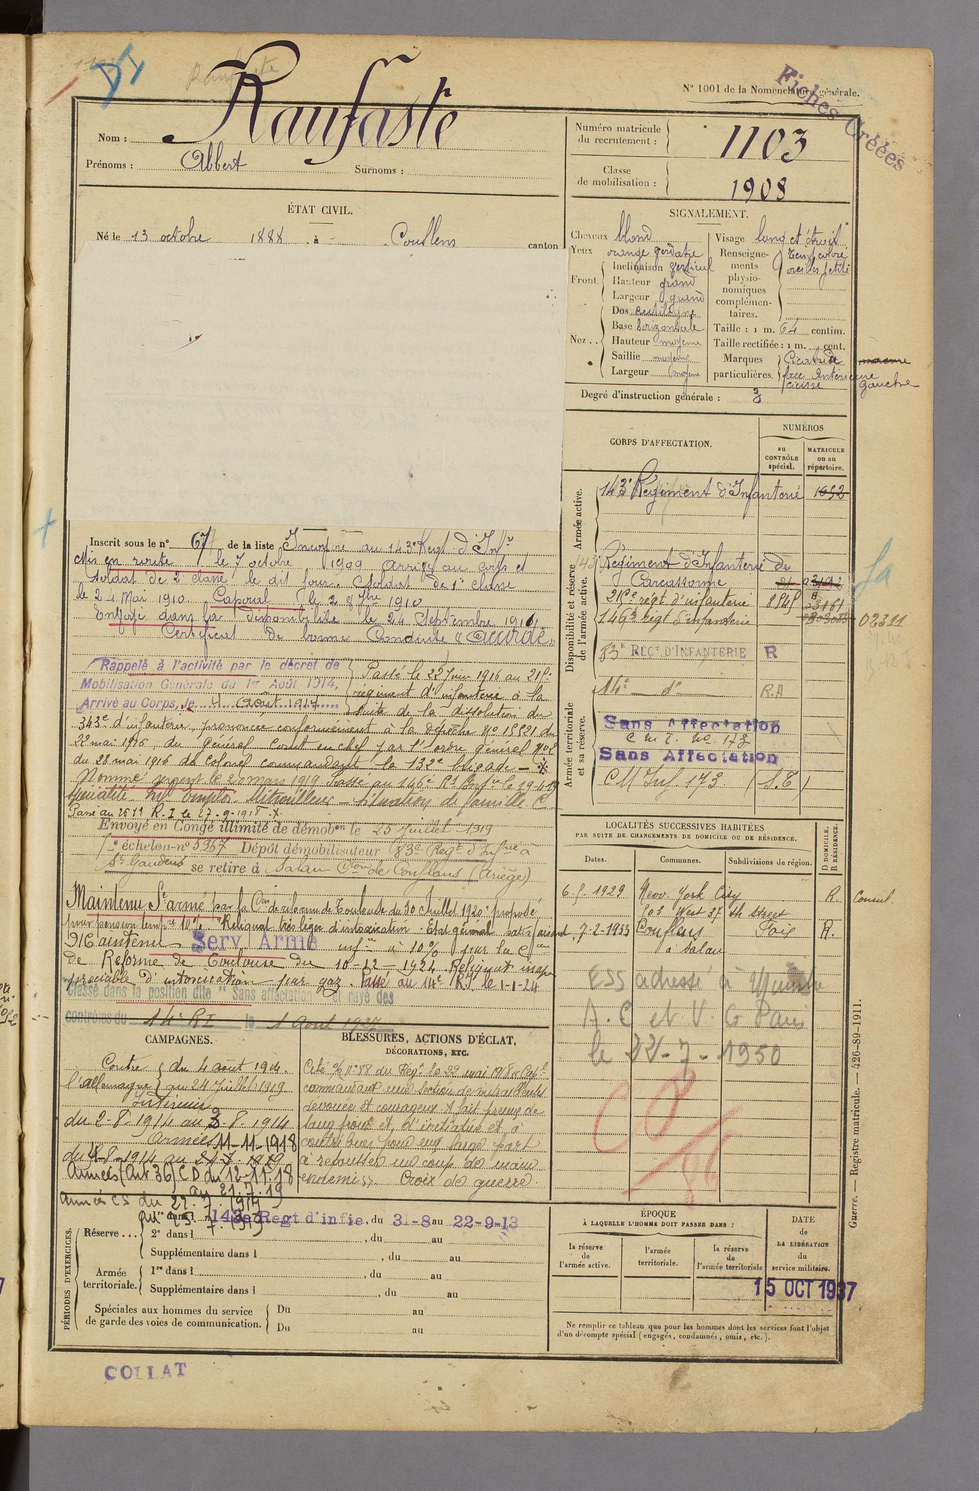 Raufaste
N° 1001 de la Nomenclature générale.
Fiches Créées
Nom : Raufaste
Prénoms : Albert Surnoms :
Numéro matricule du recrutement : 1103
Classe de mobilisation : 1908
ÉTAT CIVIL.
Né le 13 octobre 1888 à Couflens canton
SIGNALEMENT.
Cheveux blond
Yeux orange verdâtre
Front. Inclinaison vertical
Hauteur grand
Largeur grand
Nez .. Dos rectiligne
Base horizontale
Hauteur moyenne
Saillie moyenne
Largeur moyenne
Visage long et étroit
Renseignements physionomiques complémentaires.
Teint coloré
oreilles petites
Taille : 1 m. 64 centim.
Taille rectifiée : 1 m. cent.
Marques particulières. Cicatrice
face intérieure
cuisse gauche
Degré d'instruction générale : 3
CORPS D'AFFECTATION.
NUMÉROS
au CONTRÔLE spécial.
MATRICULE ou au répertoire.
Armée active.
143e Régiment d'Infanterie 1652
Disponibilité et réserve de l'armée active.
143 Régiment d'Infanterie de
Carcassonne
21 re régt d'infanterie
146e régt d'infanterie 02311
83e REGt D'INFANTERIE R
14e d° R.A
Armée territoriale et sa réserve.
Sans Affectation
C M I. No 173
Sans Affectation
CM Inf. 173 (S.E)
Inscrit sous le n° 67 de la liste Incorporé au 143e Regt d'Infie
Mis en route le 7 octobre 1909 Arrivé au corps et
soldat de 2e classe le dit jour. Soldat de 1e classe
le 24 Mai 1910 Caporal le 2 8bre 1910
Envoyé dans la disponibilité le 24 Septembre 1911,
Certificat de bonne Conduite "Accordé"
Rappelé à l'activité par le décret de
Mobilisation Générale du 1er Août 1914,
Arrivé au Corps, le 4 Août 1914
Passé le 22 Juin 1916 au 21
régiment d'infanterie à la
suite de la dissolution du
343e d'infanterie, prononcée conformément à la dépêche No 15521 du
22 mai 1916 du général Condt en chef par l'ordre général No 2
du 28 mai 1916 du Colonel commandant la 132e brigade
Nommé sergent le 20 mars 1919 Passé au 146e Rt Infie le 19-4-19
Spécialité Mitrailleur Situation de famille C.
Passé au R.I le 27-9-1918
Envoyé en Congé illimité de démobon le 25 Juillet 1919
échelon n° 5967 Dépôt démobilisateur 83e Regt d'Infie à
St Gaudens se retire à Salau Cne de Couflens (Ariège)
Maintenu St armé par la Con de réforme de Toulouse du 30 Juillet 1920 proposé
pour pension tempre 10% Reliquat très léger d'intoxication. Etat général satisfaisant
Maintenu Serv Armé infre à 10% par la Con
de Réforme de Toulouse du 10-12-1924. Reliquat inap-
préciable d'intoxication par gaz. Passé au 14e R.I. le 1-1-24
Classé dans la position dite "Sans affectation" et rayé des
contrôles du 14e RI le 1 Aout 1927
LOCALITÉS SUCCESSIVES HABITÉES
PAR SUITE DE CHANGEMENTS DE DOMICILE OU DE RÉSIDENCE.
Dates. Communes. Subdivisions de région. D DOMICILE. R RÉSIDENCE.
1929 New York City R Consul.
503 West 37 th Street
7-2-1933 Couflens Foix R.
à Salau
ESS adressé à Ministre
A. C et V. G Paris
le 22-7-1950
CAMPAGNES.
Contre l'allemagne du 4 août 1914.
au 24 Juillet 1919
Intérieur
du 2-8-1914 au 3-8-1914
Armées 11-11-1918
Armées (Art 36) C D du 12-11-18
BLESSURES, ACTIONS D'ÉCLAT,
DÉCORATIONS, ETC.
Cité n° 88 du Régt le 22 mai 1918 Capl
commandant une section de mitrailleuses
dévoué et courageux a fait preuve de
sang froid et d'initiative et a
contribué pour une large part
à repousser un coup de main
ennemi". Croix de guerre.
PÉRIODES D'EXERCICES
Réserve ... 1re dans l 143e Regt d'infie, du 31-8 au 22-9-13
2e dans l , du au
Supplémentaire dans l , du au
Armée territoriale. 1re dans l , du au
Supplémentaire dans l , du au
Spéciales aux hommes du service de garde des voies de communication. Du au
Du au
ÉPOQUE
À LAQUELLE L'HOMME DOIT PASSER DANS :
la réserve de l'armée active.
l'armée territoriale.
la réserve de l'armée territoriale
DATE de LA LIBÉRATION du service militaire.
15 OCT 1937
Ne remplir ce tableau que pour les hommes dont les services font l'objet
d'un décompte spécial (engagés, condamnés, omis, etc.).
Guerre. — Registre matricule. — 426-89-1911.
COLLAT